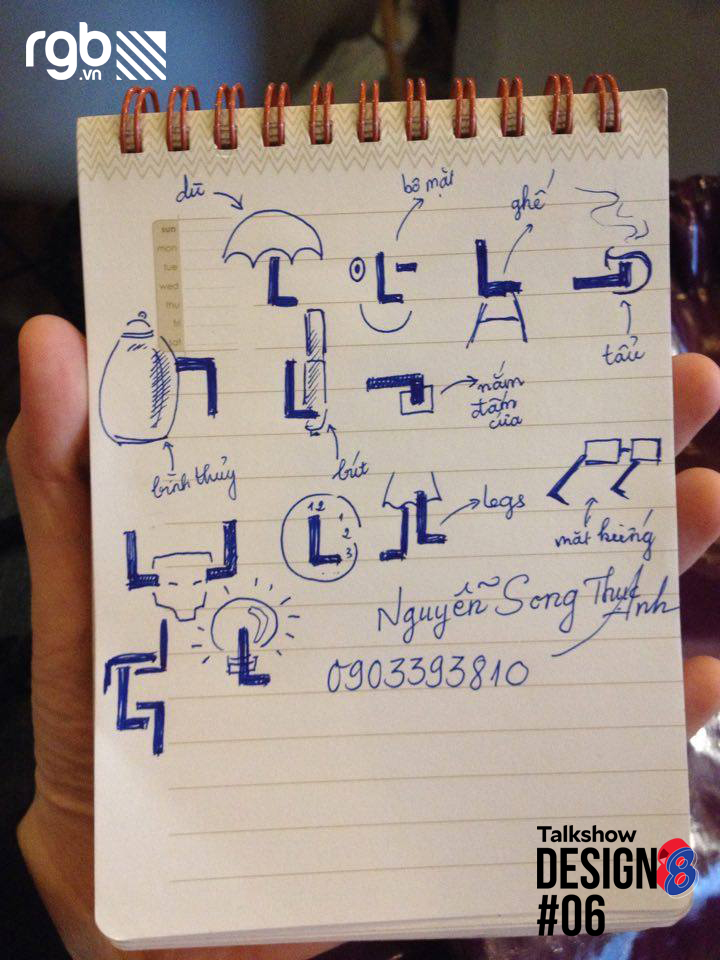 rgb
.vn
sun
mon
tue
wed
thu
fri
sat
dù
bộ mặt
ghế
tẩu
nắm
đấm
cửa
bình thủy
bút
legs
mắt kiếng
12
1
2
3
Nguyễn Song Thục Anh
0903393810
Talkshow
DESIGN 8
#06